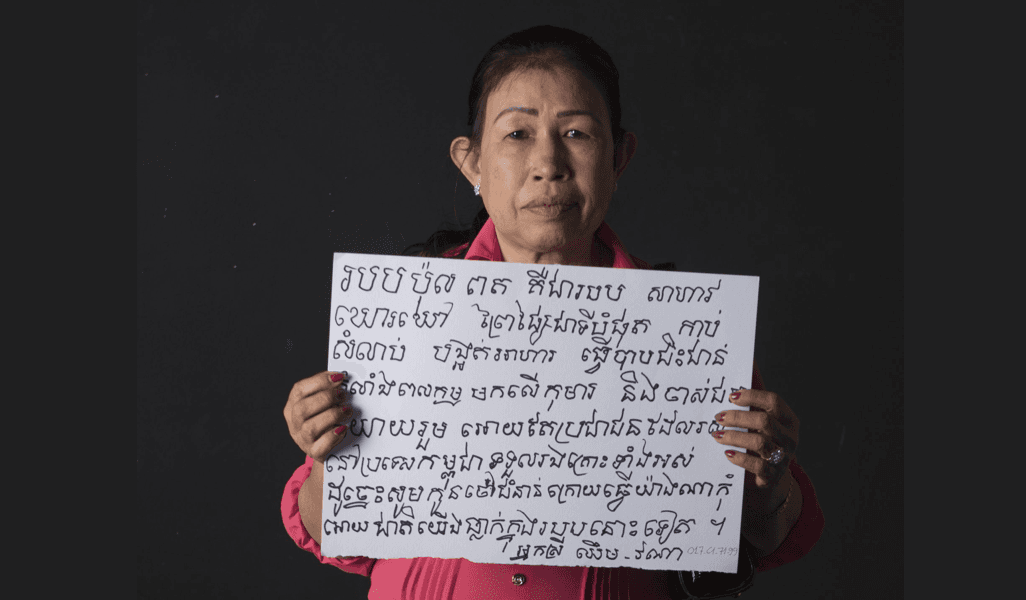 របប ប៉ុល ពត គឺជារបប សាហាវ
ឃោរឃៅ ព្រៃផ្សៃជាទីបំផុត កាប់
សំលាប់ បង្អត់អាហារ ធ្វើបាបជិះជាន់
ពលកម្ម មកលើ កុមារ និង ចាស់ជរា
រួម អោយតែប្រជាជនដែលរស់
នៅប្រទេសកម្ពុជា ទទួលរងគ្រោះទាំងអស់
ដូច្នេះសូមកូនចៅជំនាន់ក្រោយធ្វើយ៉ាងណាកុំ
អោយ ជាតិយើងធ្លាក់ក្នុងរបបនោះទៀត ។
អ្នកស្រី ឈឹម - វណា